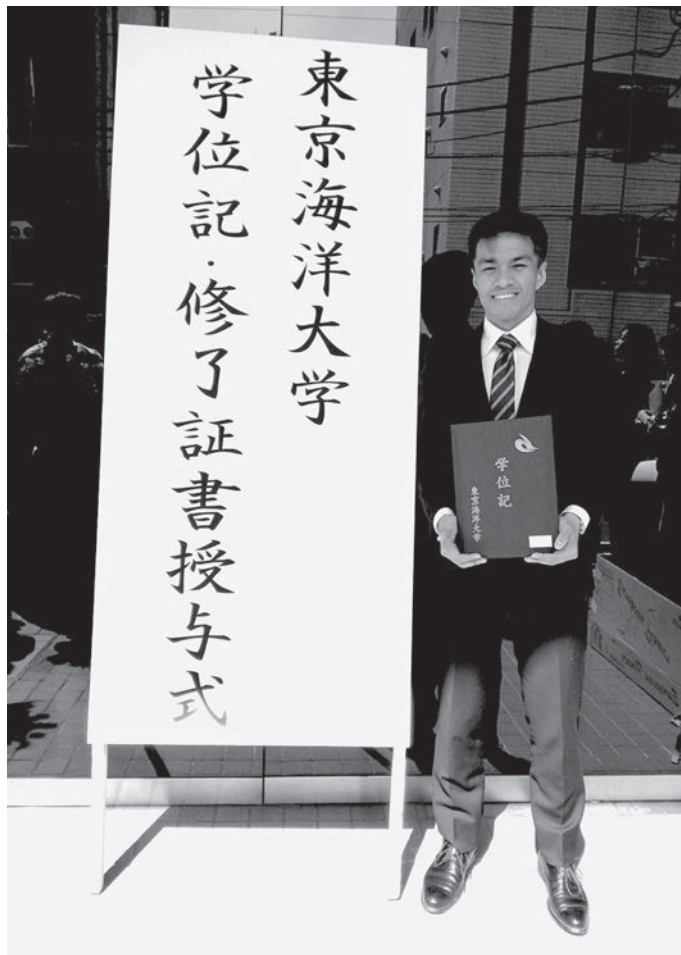 東京海洋大学
学位記・修了証書授与式
学位記
東京海洋大学